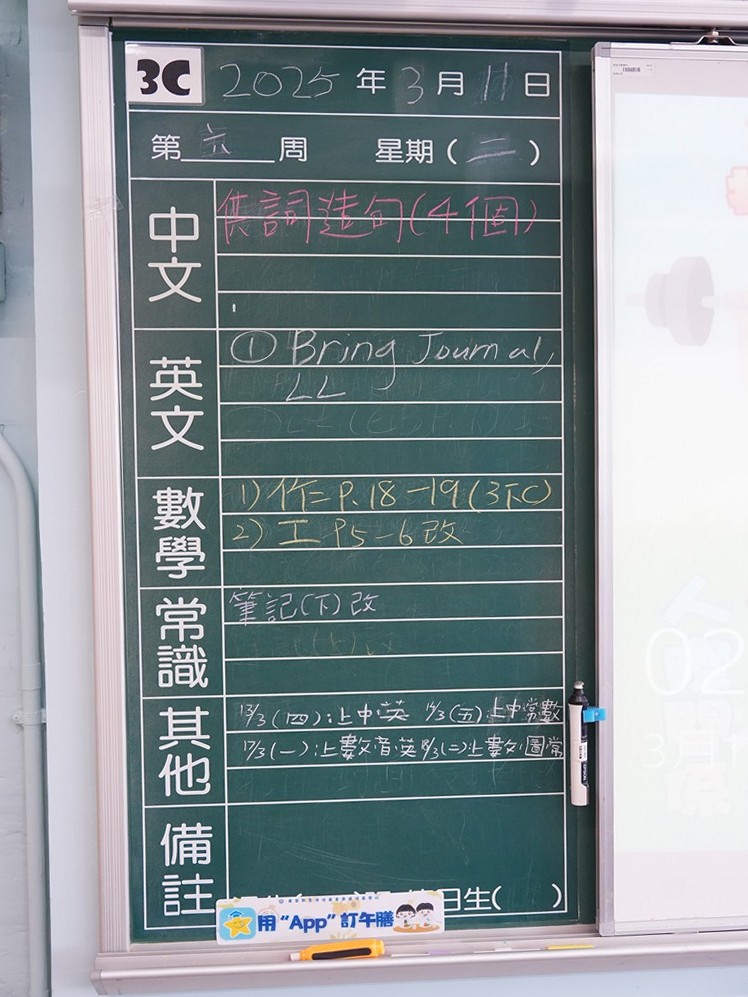 3C 2025年3月11日
第六周 星期(二)
中文
供詞造句(4個)
英文
① Bring Journal,
LL
數學
1) 作二 P.18-19(3下C)
2) 工 P5-6 改
常識
筆記(下)改
其他
13/3(四):上中英 14/3(五)上中常數
17/3(一):上數音英 18/3(二):上數文圖常
備註
日生( )
用 "App" 訂午膳
02
3月1